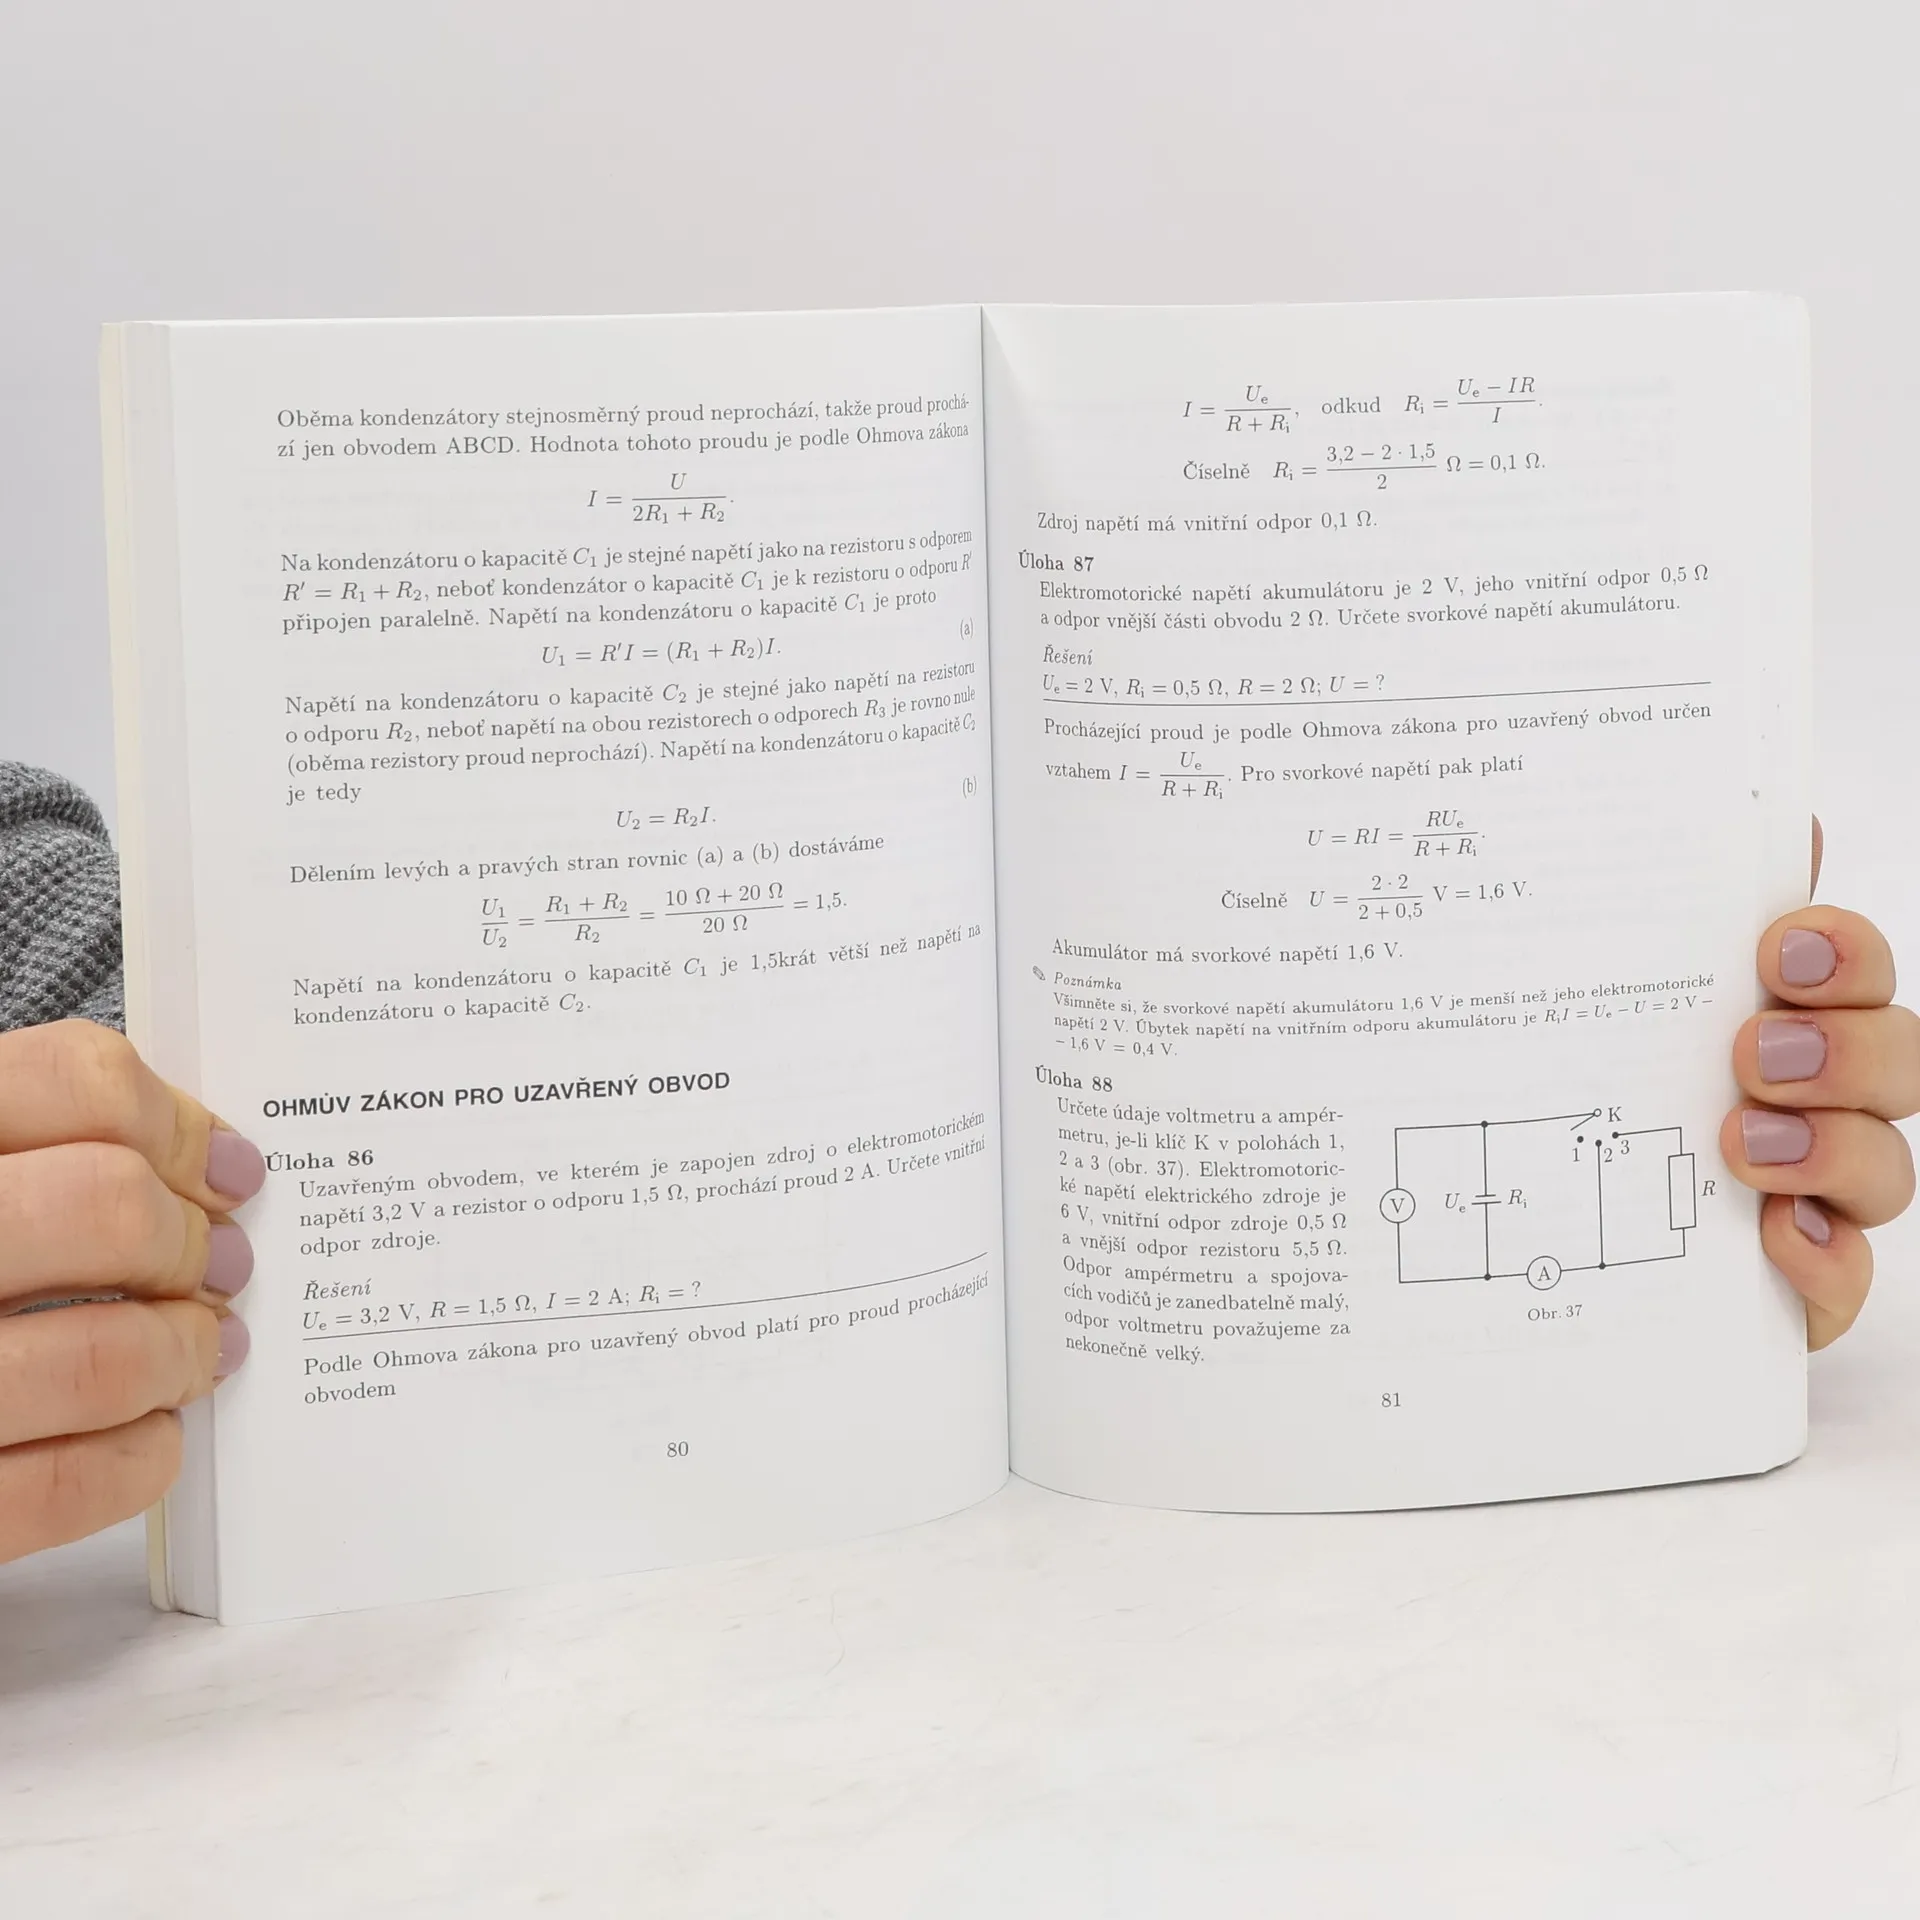 Oběma kondenzátory stejnosměrný proud neprochází, takže proud prochá-
zí jen obvodem ABCD. Hodnota tohoto proudu je podle Ohmova zákona
I = U / (2R₁ + R₂).
Na kondenzátoru o kapacitě C₁ je stejné napětí jako na rezistoru s odporem
R′ = R₁ + R₂, neboť kondenzátor o kapacitě C₁ je k rezistoru o odporu R′
připojen paralelně. Napětí na kondenzátoru o kapacitě C₁ je proto
U₁ = R′I = (R₁ + R₂)I. (a)
Napětí na kondenzátoru o kapacitě C₂ je stejné jako napětí na rezistoru
o odporu R₂, neboť napětí na obou rezistorech o odporech R₃ je rovno nule
(oběma rezistory proud neprochází). Napětí na kondenzátoru o kapacitě C₂
je tedy
U₂ = R₂I. (b)
Dělením levých a pravých stran rovnic (a) a (b) dostáváme
U₁/U₂ = (R₁ + R₂)/R₂ = (10 Ω + 20 Ω)/(20 Ω) = 1,5.
Napětí na kondenzátoru o kapacitě C₁ je 1,5krát větší než napětí na
kondenzátoru o kapacitě C₂.
OHMŮV ZÁKON PRO UZAVŘENÝ OBVOD
Úloha 86
Uzavřeným obvodem, ve kterém je zapojen zdroj o elektromotorickém
napětí 3,2 V a rezistor o odporu 1,5 Ω, prochází proud 2 A. Určete vnitřní
odpor zdroje.
Řešení
Uₑ = 3,2 V, R = 1,5 Ω, I = 2 A; Rᵢ = ?
Podle Ohmova zákona pro uzavřený obvod platí pro proud procházející
obvodem
80
I = Uₑ/(R + Rᵢ), odkud Rᵢ = (Uₑ − IR)/I.
Číselně Rᵢ = (3,2 − 2 · 1,5)/2 Ω = 0,1 Ω.
Zdroj napětí má vnitřní odpor 0,1 Ω.
Úloha 87
Elektromotorické napětí akumulátoru je 2 V, jeho vnitřní odpor 0,5 Ω
a odpor vnější části obvodu 2 Ω. Určete svorkové napětí akumulátoru.
Řešení
Uₑ = 2 V, Rᵢ = 0,5 Ω, R = 2 Ω; U = ?
Procházející proud je podle Ohmova zákona pro uzavřený obvod určen
vztahem I = Uₑ/(R + Rᵢ). Pro svorkové napětí pak platí
U = RI = RUₑ/(R + Rᵢ).
Číselně U = (2 · 2)/(2 + 0,5) V = 1,6 V.
Akumulátor má svorkové napětí 1,6 V.
✎ Poznámka
Všimněte si, že svorkové napětí akumulátoru 1,6 V je menší než jeho elektromotorické
napětí 2 V. Úbytek napětí na vnitřním odporu akumulátoru je RᵢI = Uₑ − U = 2 V −
− 1,6 V = 0,4 V.
Úloha 88
Určete údaje voltmetru a ampér-
metru, je-li klíč K v polohách 1,
2 a 3 (obr. 37). Elektromotoric-
ké napětí elektrického zdroje je
6 V, vnitřní odpor zdroje 0,5 Ω
a vnější odpor rezistoru 5,5 Ω.
Odpor ampérmetru a spojova-
cích vodičů je zanedbatelně malý,
odpor voltmetru považujeme za
nekonečně velký.
K
1 2 3
V Uₑ Rᵢ R
A
Obr. 37
81